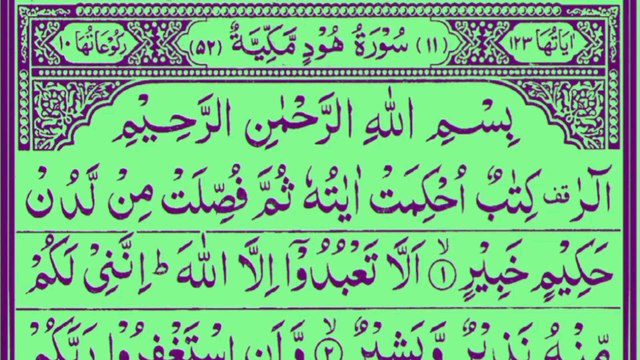 اٰیَاتُهَا ۱۲۳ (۱۱) سُوْرَةُ هُوْدٍ مَّكِّیَّةٌ (۵۲) رُكُوْعَاتُهَا ۱۰
بِسْمِ اللّٰهِ الرَّحْمٰنِ الرَّحِیْمِ
الٓرٰ قف كِتٰبٌ اُحْكِمَتْ اٰیٰتُهٗ ثُمَّ فُصِّلَتْ مِنْ لَّدُنْ
حَكِیْمٍ خَبِیْرٍ ۙ﴿۱﴾ اَلَّا تَعْبُدُوْۤا اِلَّا اللّٰهَ ؕ اِنَّنِیْ لَكُمْ
مِّنْهُ نَذِیْرٌ وَّ بَشِیْرٌ ۙ﴿۲﴾ وَّ اَنِ اسْتَغْفِرُوْا رَبَّكُمْ